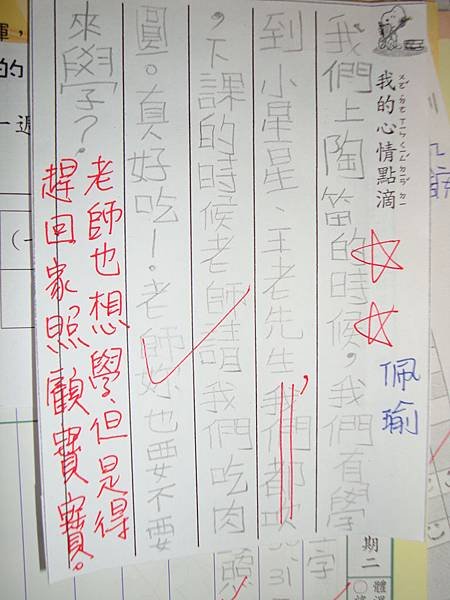 我的心情點滴
佩瑜
我們上陶笛的時候，我們有學
到小星星、王老先生我們都吹
，下課的時候老師請我們吃肉
圓。真好吃！。老師妳也要不要
來學？。
老師也想學，但是得
趕回家照顧寶寶。
期二
的
一週
(一